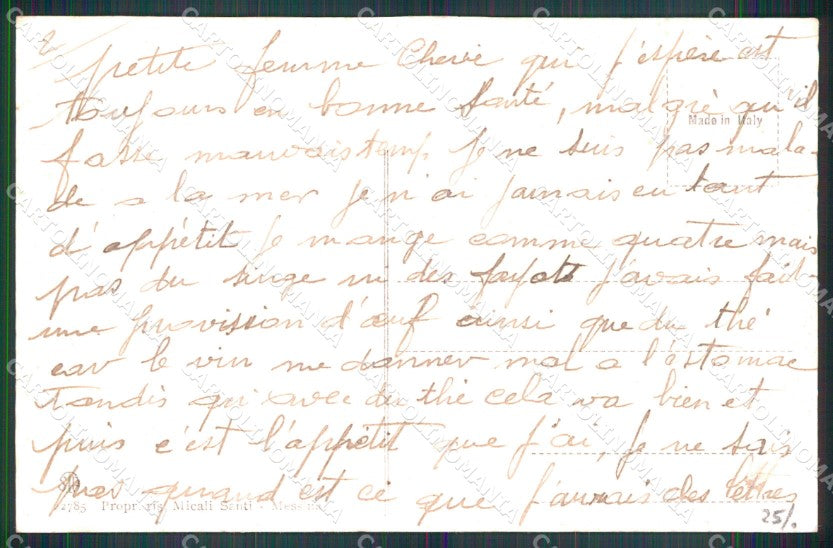 petite femme Cherie qui j'espère est
toujours en bonne Santé, malgrè qu'il
fasse mauvais temp. Je ne suis pas mala-
de a la mer je n'ai jamais eu tant
d'appétit je mange comme quatre mais
pas du singe ni des fayots j'avais fait
une provision d'œuf ainsi que du thé
car le vin me donner mal a l'estomac
Tandis qu'avec du thé cela va bien et
puis c'est l'appétit que j'ai, je ne suis
pas quand est ce que j'aurais des lettres
Made in Italy
2785 Propr. ris. Micali Santi - Messina
25/.
CARTOLINOMANIA